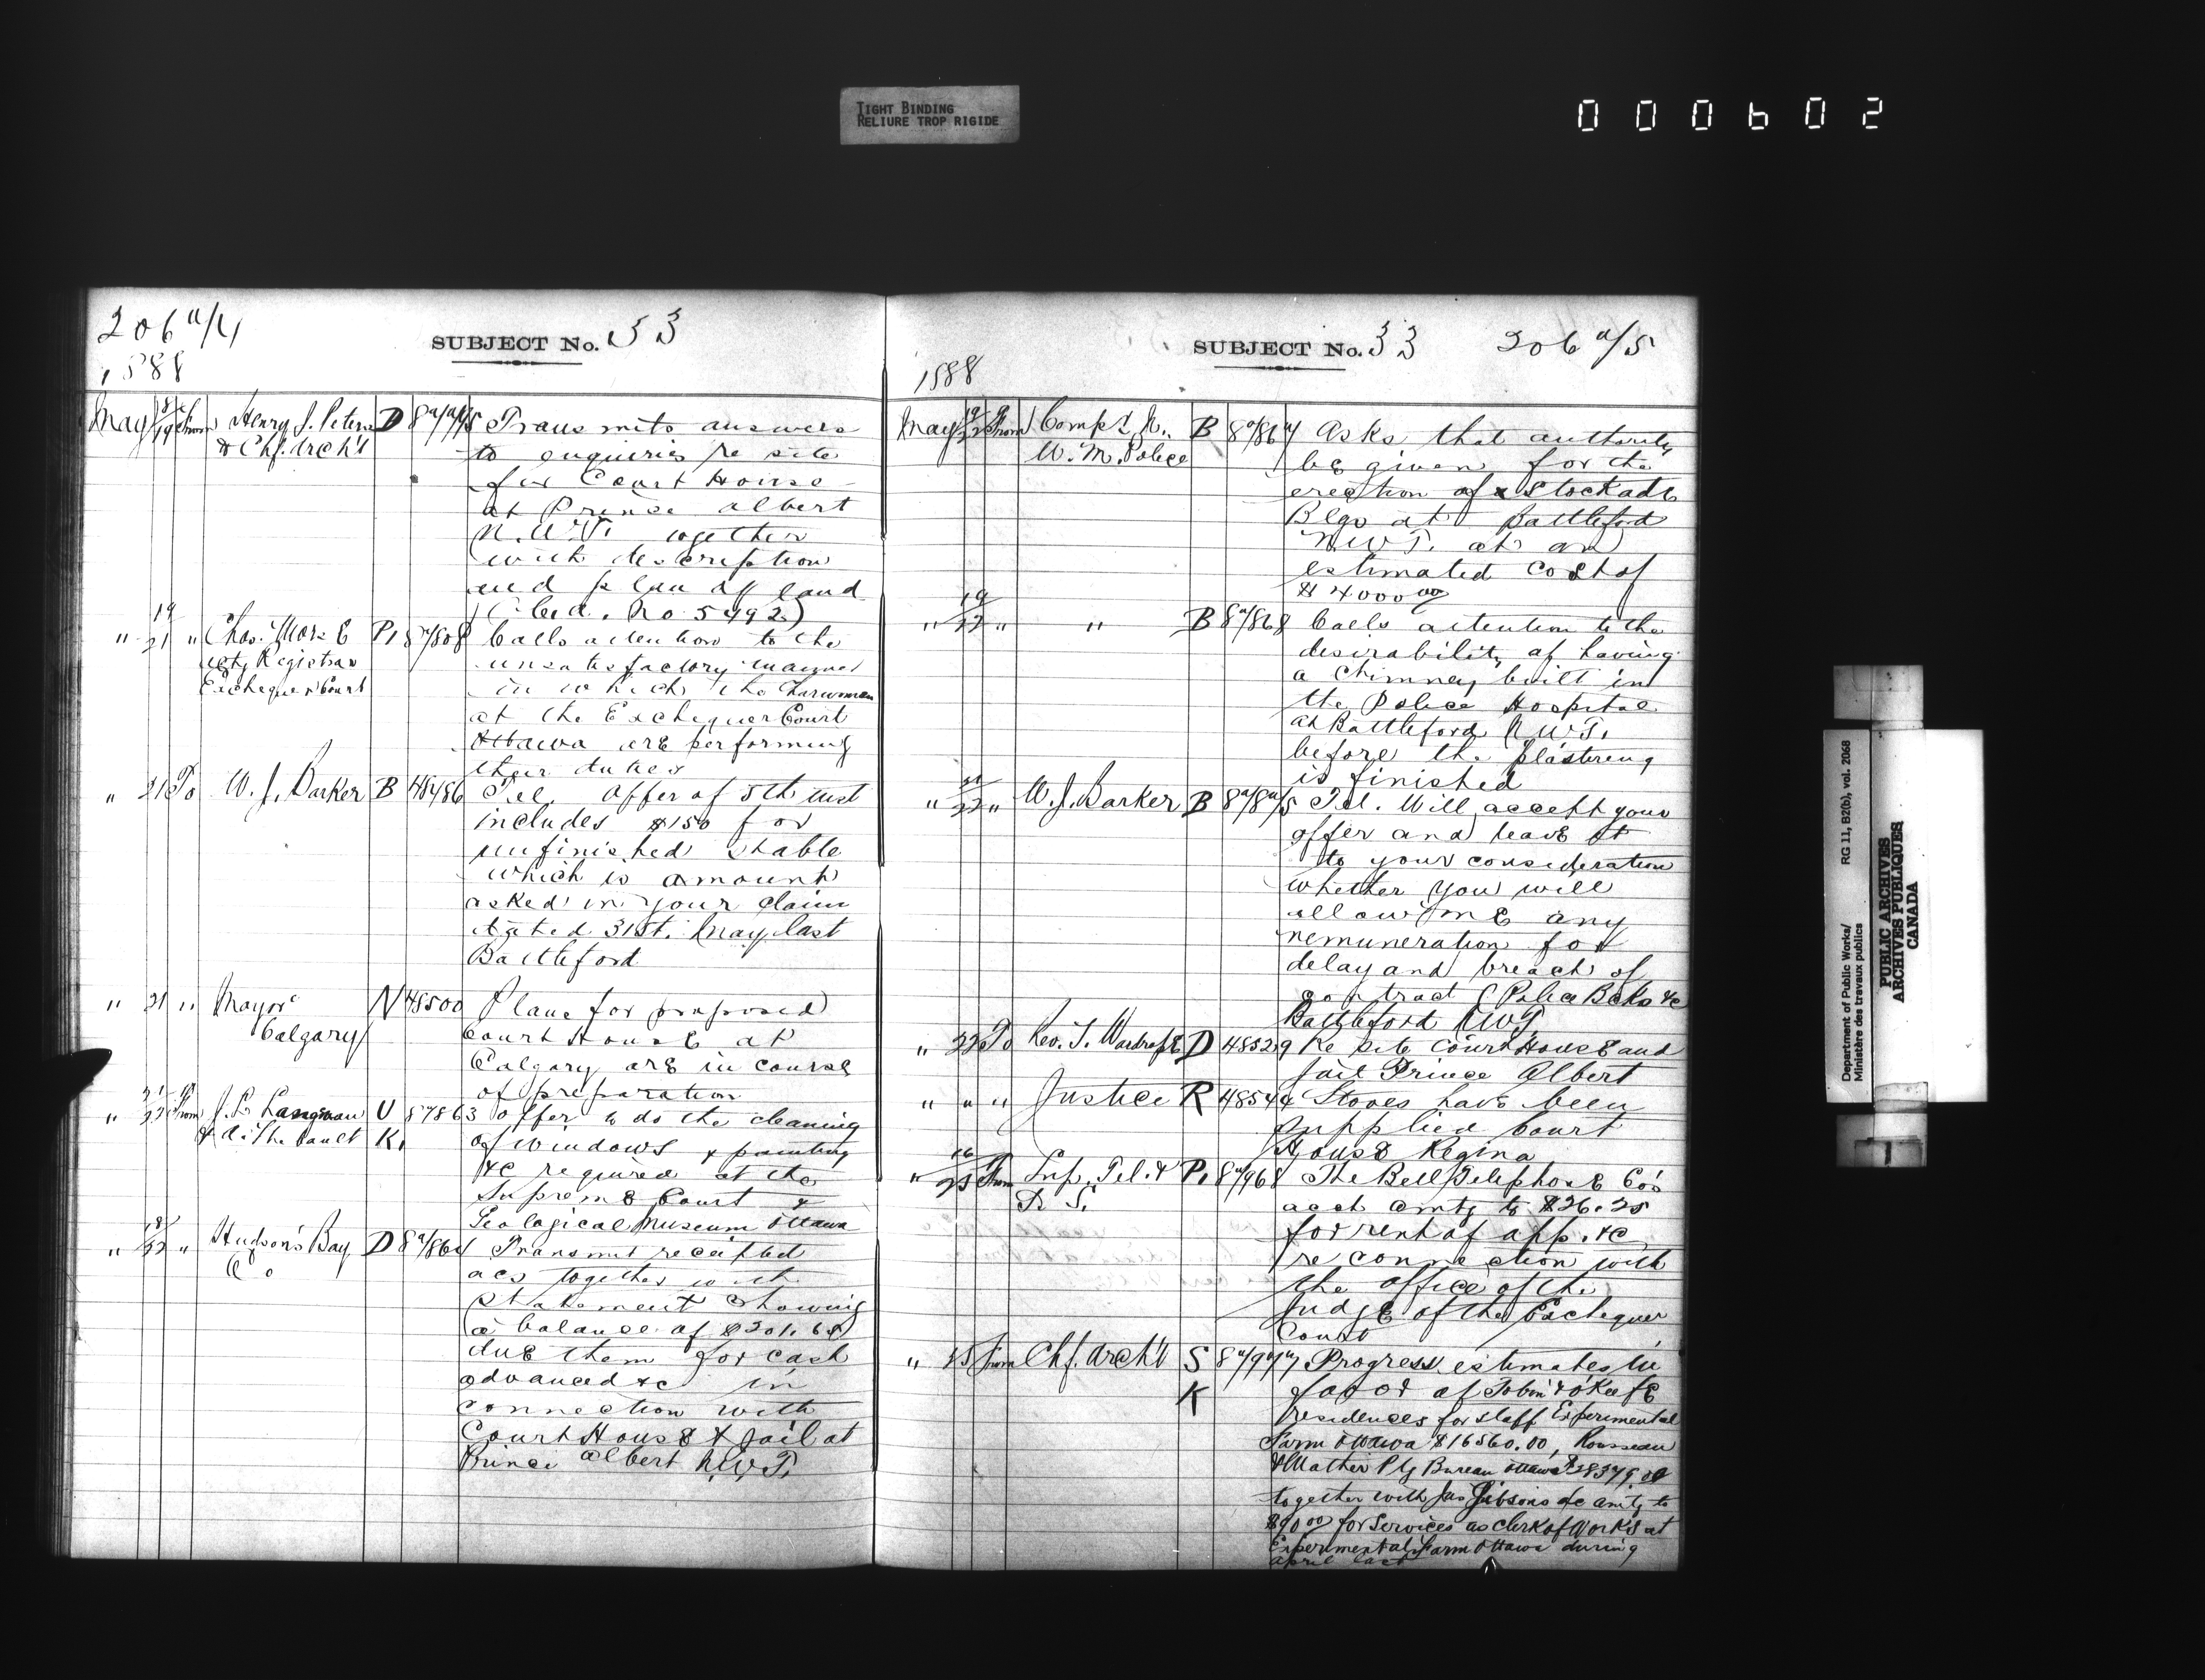 TIGHT BINDING
RELIURE TROP RIGIDE
000602
206 a/4
SUBJECT No. 33
1888
May 18/19 From Henry J. Peters D
& Chf. Arch't
Transmits answers
to enquiries re site
for Court House
at Prince Albert
N.W.T. together
with description
and plan of land
(Cled. No 5492)
" 19/21 " Chas. Morse P.
Depty Registrar
Exchequer Court
Calls attention to the
unsatisfactory manner
in which the charwomen
at the Exchequer Court
Ottawa are performing
their duties
" 21 To W. J. Barker B 48486 Tel. Offer of 5th inst
includes $150 for
unfinished stable
which is amount
asked in your claim
dated 31st. May last
Battleford
" 21 " Mayor N 48500 Plans for proposed
Calgary
Court House at
Calgary are in course
of preparation
" 21/22 From J. L. Langman U 87863 Offer to do the cleaning
K.
of windows & painting
&c required at the
Supreme Court &
Geological Museum Ottawa
" 18/22 " Hudson's Bay D Transmit receipted
Co
acs together with
statement showing
a balance of
due them for cash
advanced &c in
connection with
Court House & Jail at
Prince Albert N.W.T.
SUBJECT No. 33 206 a/5
1888
May 19/22 From Compt. N. B Asks that authority
W. M. Police
be given for the
erection of a Stockade
Blgs at Battleford
N.W.T. at an
estimated cost of
$4000 00
" 19/22 " " B Calls attention to the
desirability of having
a chimney built in
the Police Hospital
at Battleford N.W.T.
before the plastering
is finished
" 21/22 " W. J. Barker B Tel. Will accept your
offer and leave it
to your consideration
whether you will
allow me any
remuneration for
delay and breach of
contract (Police Bcks &c
Battleford NWT
" 22 To Rev. J. Wardrope D 48529 Re site Court House and
Jail Prince Albert
" " " Justice R Stoves have been
supplied Court
House Regina
" 16/25 From Sup. Tel. & P. The Bell Telephone Co's
S.
acct amtg to $26.25
for rent of app. &c
re connection with
the office of the
Judge of the Exchequer
Court
" 25 From Chf. Arch't S Progress estimates in
K
favor of Tobin & O'Keefe
residences for staff Experimental
Farm Ottawa $16560.00, Rousseau
& Mather Ptg Bureau Ottawa
together with Jas Gibsons &c amtg to
$90 00 for services as clerk of works at
Experimental Farm Ottawa during
April last
Department of Public Works/
Ministère des travaux publics
RG 11, B2(b), vol. 2068
PUBLIC ARCHIVES
ARCHIVES PUBLIQUES
CANADA